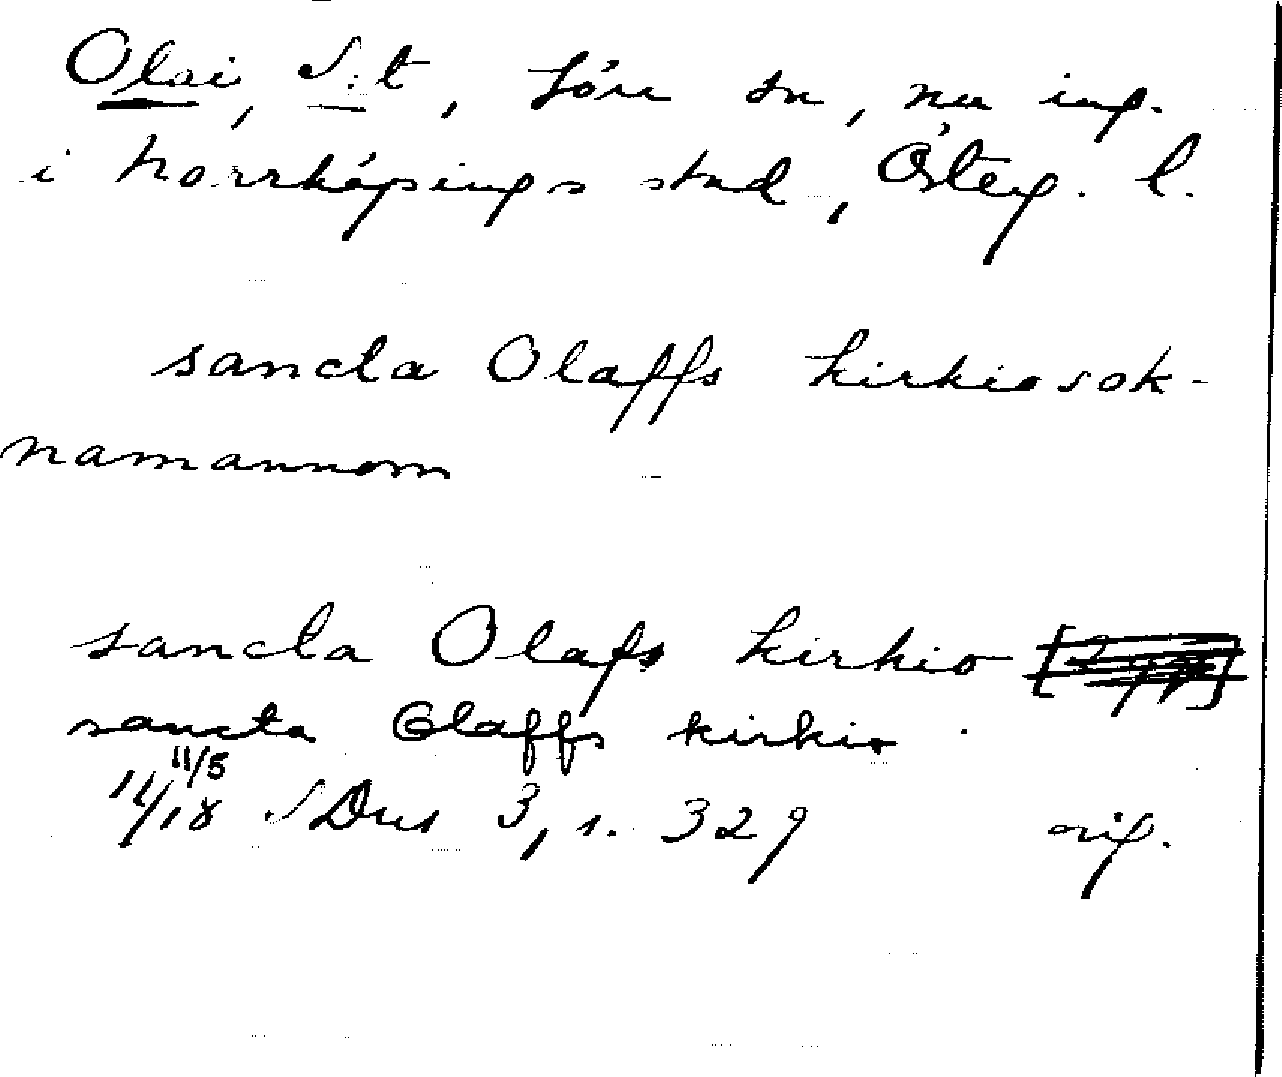 Olai, S:t, förr sn, nu ing.
i Norrköpings stad, Österg. l.
sancta Olaffs kirkiosok-
namannom
sancta Olafs kirkio
sancta Olaffs kirkio
11/5
14/18 SDns 3, s. 329 orig.